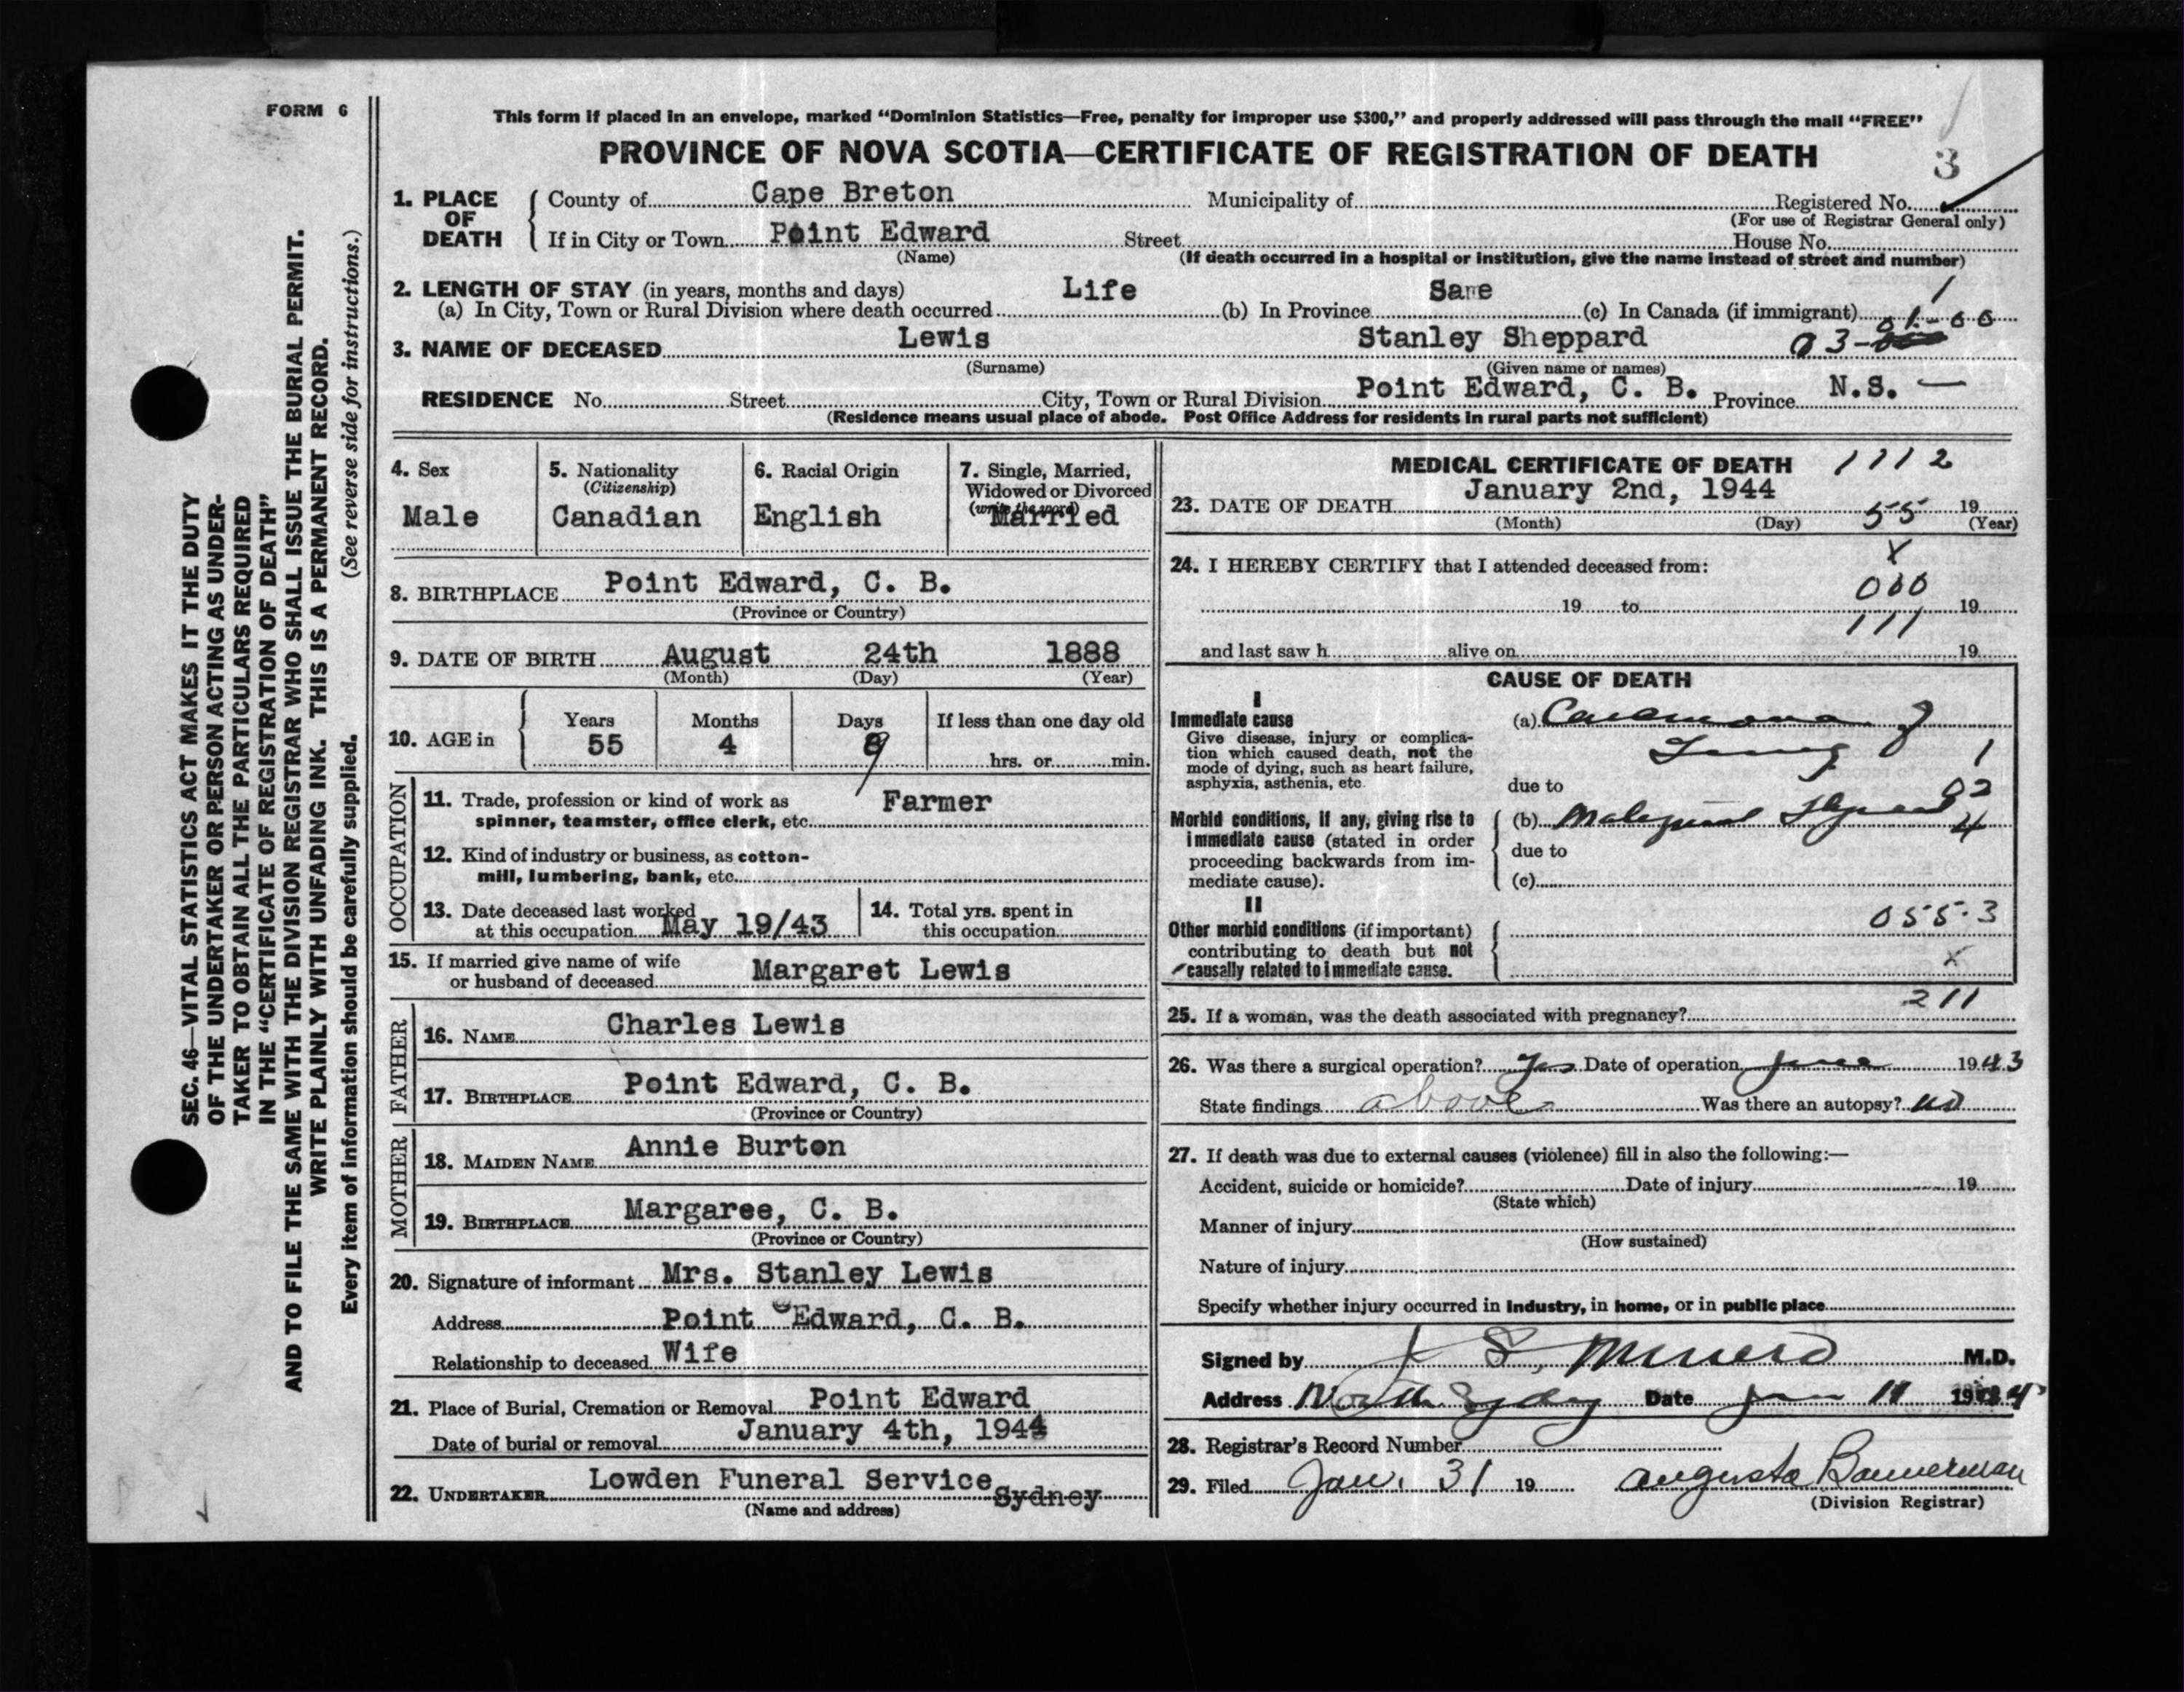 FORM 6
This form if placed in an envelope, marked “Dominion Statistics—Free, penalty for improper use $300,” and properly addressed will pass through the mail “FREE”
PROVINCE OF NOVA SCOTIA—CERTIFICATE OF REGISTRATION OF DEATH
3
1. PLACE OF DEATH
County of Cape Breton Municipality of Registered No.
(For use of Registrar General only)
If in City or Town Point Edward Street House No.
(Name) (If death occurred in a hospital or institution, give the name instead of street and number)
2. LENGTH OF STAY (in years, months and days)
(a) In City, Town or Rural Division where death occurred Life (b) In Province Same (c) In Canada (if immigrant)
3. NAME OF DECEASED Lewis Stanley Sheppard
(Surname) (Given name or names)
RESIDENCE No. Street City, Town or Rural Division Point Edward, C. B. Province N.S.
(Residence means usual place of abode. Post Office Address for residents in rural parts not sufficient)
4. Sex
Male
5. Nationality
(Citizenship)
Canadian
6. Racial Origin
English
7. Single, Married,
Widowed or Divorced
(write the word)
Married
8. BIRTHPLACE Point Edward, C. B.
(Province or Country)
9. DATE OF BIRTH August 24th 1888
(Month) (Day) (Year)
10. AGE in
Years Months Days If less than one day old
55 4 9 hrs. or min.
OCCUPATION
11. Trade, profession or kind of work as
spinner, teamster, office clerk, etc. Farmer
12. Kind of industry or business, as cotton-
mill, lumbering, bank, etc.
13. Date deceased last worked
at this occupation May 19/43
14. Total yrs. spent in
this occupation
15. If married give name of wife
or husband of deceased Margaret Lewis
FATHER
16. NAME Charles Lewis
17. BIRTHPLACE Point Edward, C. B.
(Province or Country)
MOTHER
18. MAIDEN NAME Annie Burton
19. BIRTHPLACE Margaree, C. B.
(Province or Country)
20. Signature of informant Mrs. Stanley Lewis
Address Point Edward, C. B.
Relationship to deceased Wife
21. Place of Burial, Cremation or Removal Point Edward
Date of burial or removal January 4th, 1944
22. UNDERTAKER Lowden Funeral Service Sydney
(Name and address)
MEDICAL CERTIFICATE OF DEATH 1112
23. DATE OF DEATH January 2nd, 1944 19
(Month) (Day) (Year)
55
24. I HEREBY CERTIFY that I attended deceased from:
X
000
19 to 19
111
and last saw h alive on 19
CAUSE OF DEATH
I
Immediate cause
Give disease, injury or complica-
tion which caused death, not the
mode of dying, such as heart failure,
asphyxia, asthenia, etc
(a) Carcinoma of
Lung
due to
Morbid conditions, if any, giving rise to
immediate cause (stated in order
proceeding backwards from im-
mediate cause).
(b) Malignant
due to
(c)
II
Other morbid conditions (if important)
contributing to death but not
causally related to immediate cause.
055.3
X
211
25. If a woman, was the death associated with pregnancy?
26. Was there a surgical operation? Yes Date of operation June 1943
State findings above Was there an autopsy? no
27. If death was due to external causes (violence) fill in also the following:—
Accident, suicide or homicide? Date of injury 19
(State which)
Manner of injury
(How sustained)
Nature of injury
Specify whether injury occurred in industry, in home, or in public place
Signed by M.D.
Address North Sydney Date Jan 11 1944
28. Registrar's Record Number
29. Filed Jan. 31 19 Augusta Bannerman
(Division Registrar)
SEC. 46—VITAL STATISTICS ACT MAKES IT THE DUTY
OF THE UNDERTAKER OR PERSON ACTING AS UNDER-
TAKER TO OBTAIN ALL THE PARTICULARS REQUIRED
IN THE “CERTIFICATE OF REGISTRATION OF DEATH”
AND TO FILE THE SAME WITH THE DIVISION REGISTRAR WHO SHALL ISSUE THE BURIAL PERMIT.
WRITE PLAINLY WITH UNFADING INK. THIS IS A PERMANENT RECORD.
Every item of information should be carefully supplied. (See reverse side for instructions.)